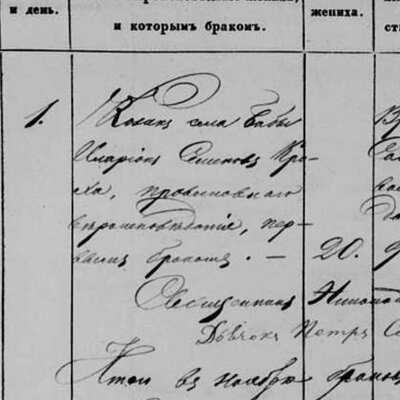 и день.
и которымъ бракомъ.
жениха.
1.
Козакъ села Бабы
Иларіонъ Семеновъ Кро-
ха, православнаго
вѣроисповѣданія, пер-
вымъ бракомъ. —
20.
Священникъ
Дьячокъ Петръ
Итого въ ноябрѣ браковъ